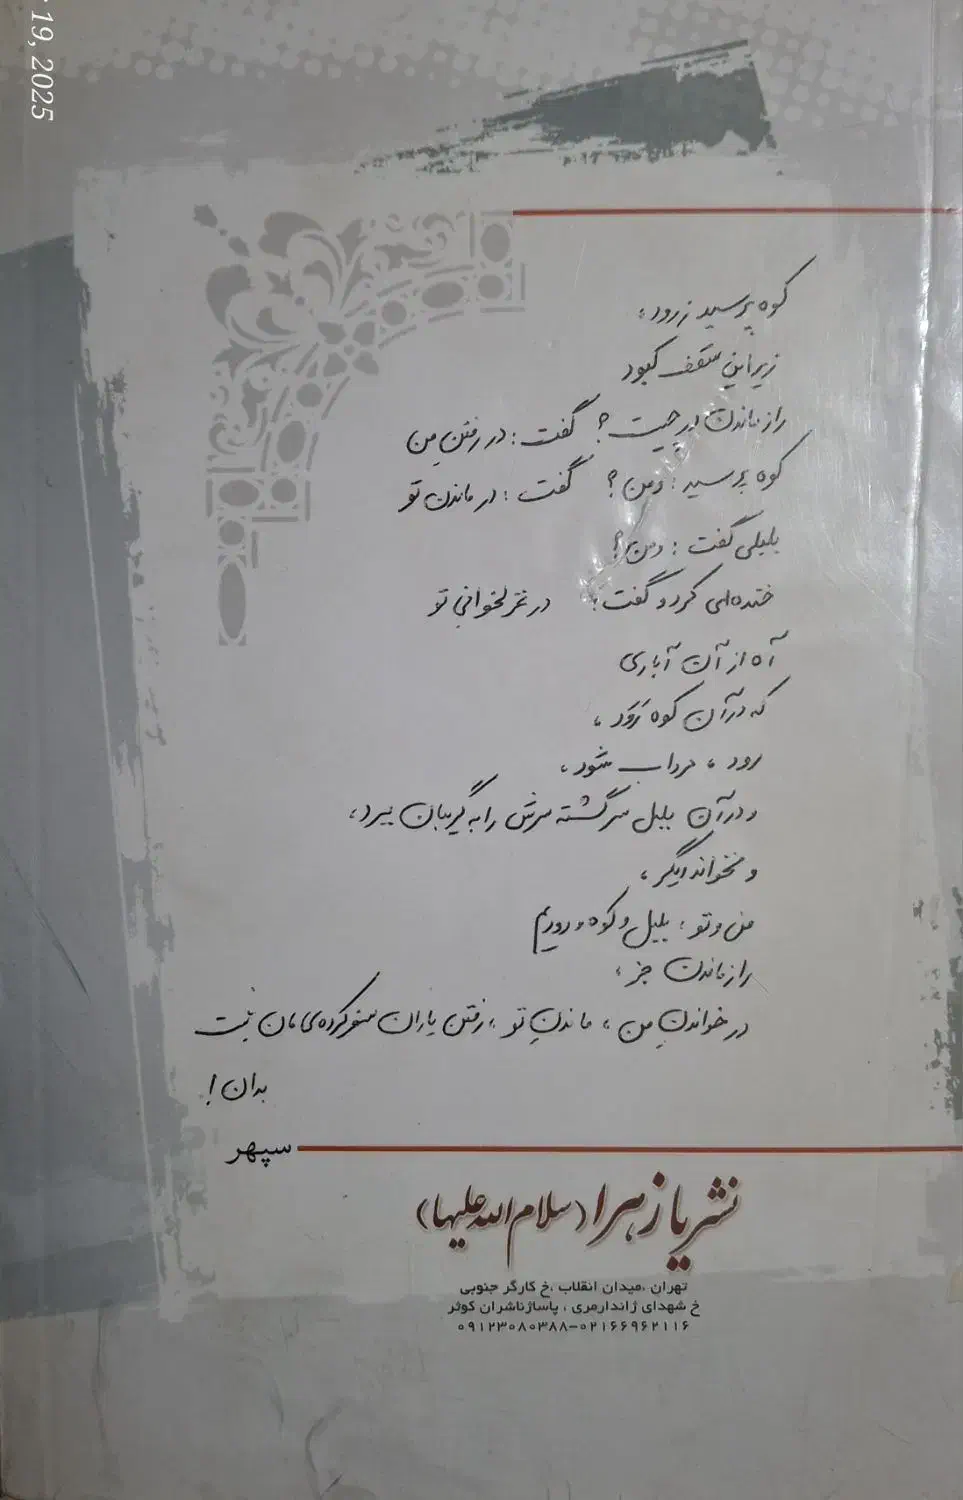 19, 2025
کوه پرسید ز رود،
زیر این سقف کبود
راز ماندن در چیست؟ گفت: در رفتن من
کوه پرسید: و من؟ گفت: در ماندن تو
بلبلی گفت: و من؟
خنده‌ای کرد و گفت: در غزلخوانی تو
آه از آن آبادی
که در آن کوه رَوَد،
رود، مرداب شود،
و در آن بلبل سرگشته سرش را به گریبان ببرد،
و نخواند دیگر،
من و تو، بلبل و کوه و رودیم
راز ماندن جز،
در خواندن من، ماندن تو، رفتن یاران سفر کرده‌ی مان نیست
بدان!
سپهر
نشر یا زهرا (سلام الله علیها)
تهران ،میدان انقلاب ،خ کارگر جنوبی
خ شهدای ژاندارمری ، پاساژ ناشران کوثر
۰۹۱۲۳۰۸۰۳۸۸-۰۲۱۶۶۹۶۲۱۱۶